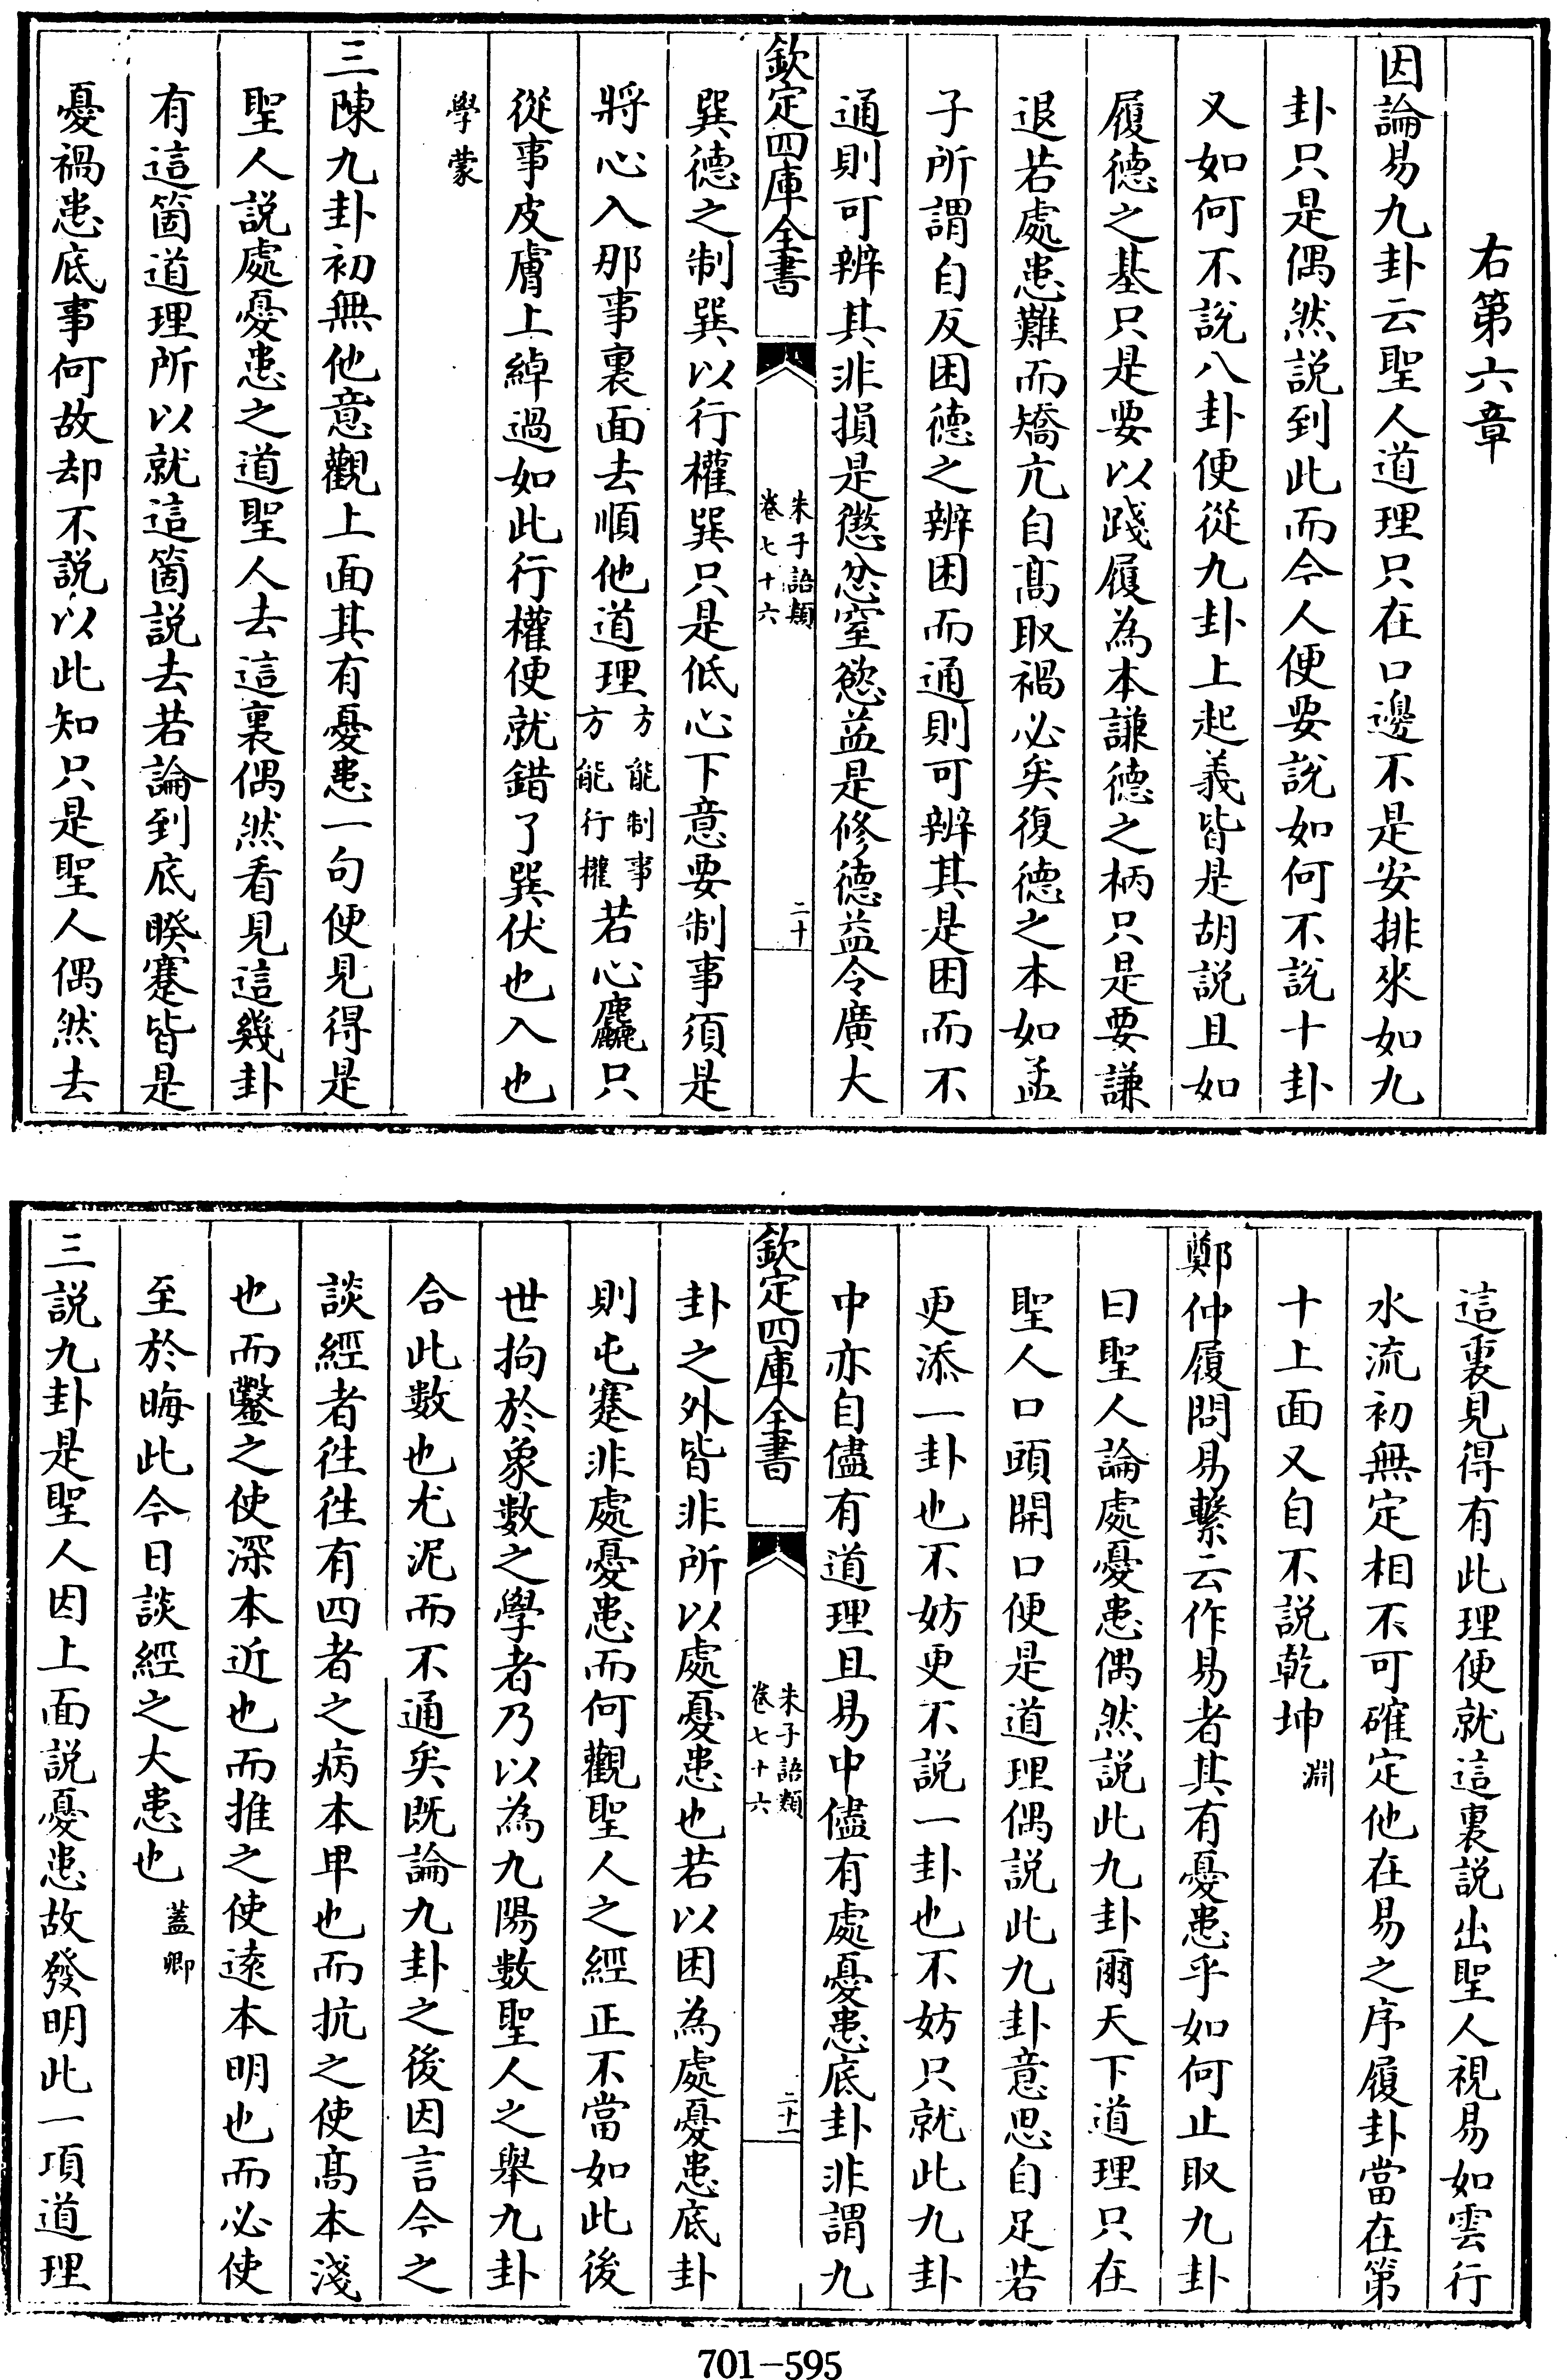 右第六章
因論易九卦云聖人道理只在口邊不是安排來如九
卦只是偶然説到此而今人便要説如何不説十卦
又如何不説八卦便從九卦上起義皆是胡説且如
履德之基只是要以踐履為本謙德之柄只是要謙
退若處患難而矯亢自髙取禍必矣復德之本如孟
子所謂自反困德之辨困而通則可辨其是困而不
通則可辨其非損是懲忿窒慾益是修德益令廣大
欽定四庫全書
朱子語類
卷七十六
二十
巽德之制巽以行權巽只是低心下意要制事須是
將心入那事裏面去順他道理方能制事方能行權若心麤只
從事皮膚上綽過如此行權便就錯了巽伏也入也
學蒙
三陳九卦初無他意觀上面其有憂患一句便見得是
聖人説處憂患之道聖人去這裏偶然看見這幾卦
有這箇道理所以就這箇説去若論到底睽蹇皆是
憂禍患底事何故却不説以此知只是聖人偶然去
這裏見得有此理便就這裏説出聖人視易如雲行
水流初無定相不可確定他在易之序履卦當在第
十上面又自不説乾坤淵
鄭仲履問易繫云作易者其有憂患乎如何止取九卦
曰聖人論處憂患偶然説此九卦爾天下道理只在
聖人口頭開口便是道理偶説此九卦意思自足若
更添一卦也不妨更不説一卦也不妨只就此九卦
中亦自儘有道理且易中儘有處憂患底卦非謂九
欽定四庫全書
朱子語類
卷七十六
二十一
卦之外皆非所以處憂患也若以困為處憂患底卦
則屯蹇非處憂患而何觀聖人之經正不當如此後
世拘於象數之學者乃以為九陽數聖人之舉九卦
合此數也尤泥而不通矣既論九卦之後因言今之
談經者徃徃有四者之病本卑也而抗之使髙本淺
也而鑿之使深本近也而推之使逺本明也而必使
至於晦此今日談經之大患也蓋卿
三説九卦是聖人因上面説憂患故發明此一項道理
701-595